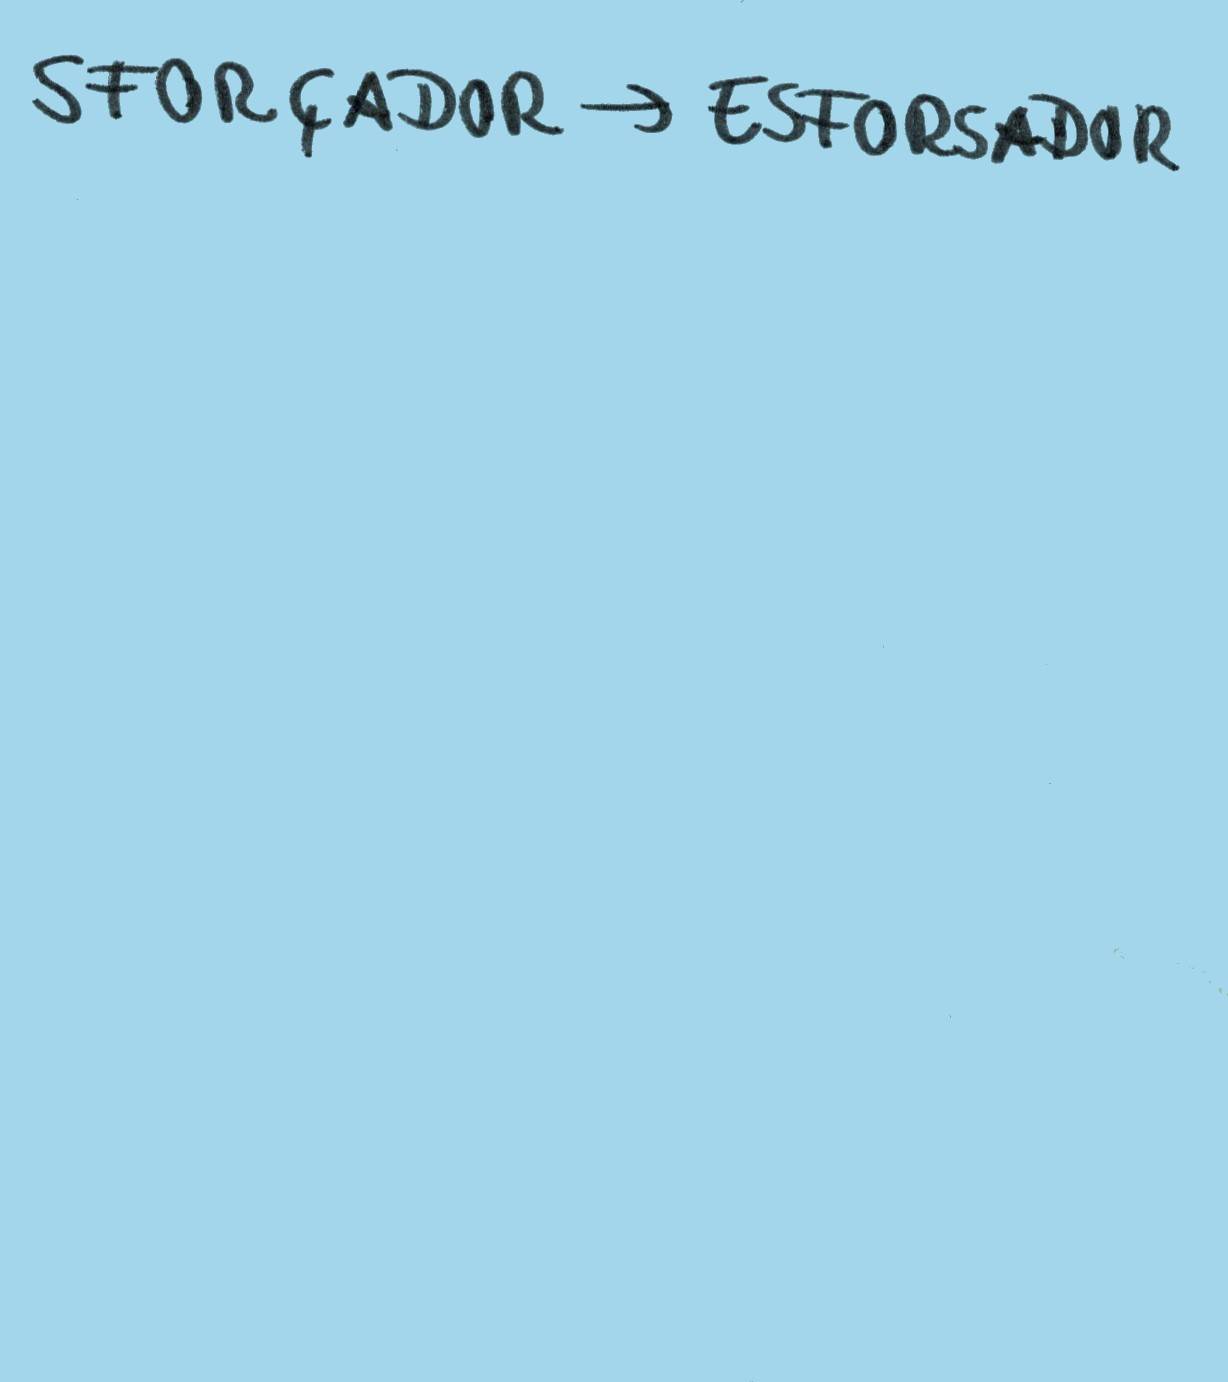 SFORÇADOR → ESFORSADOR